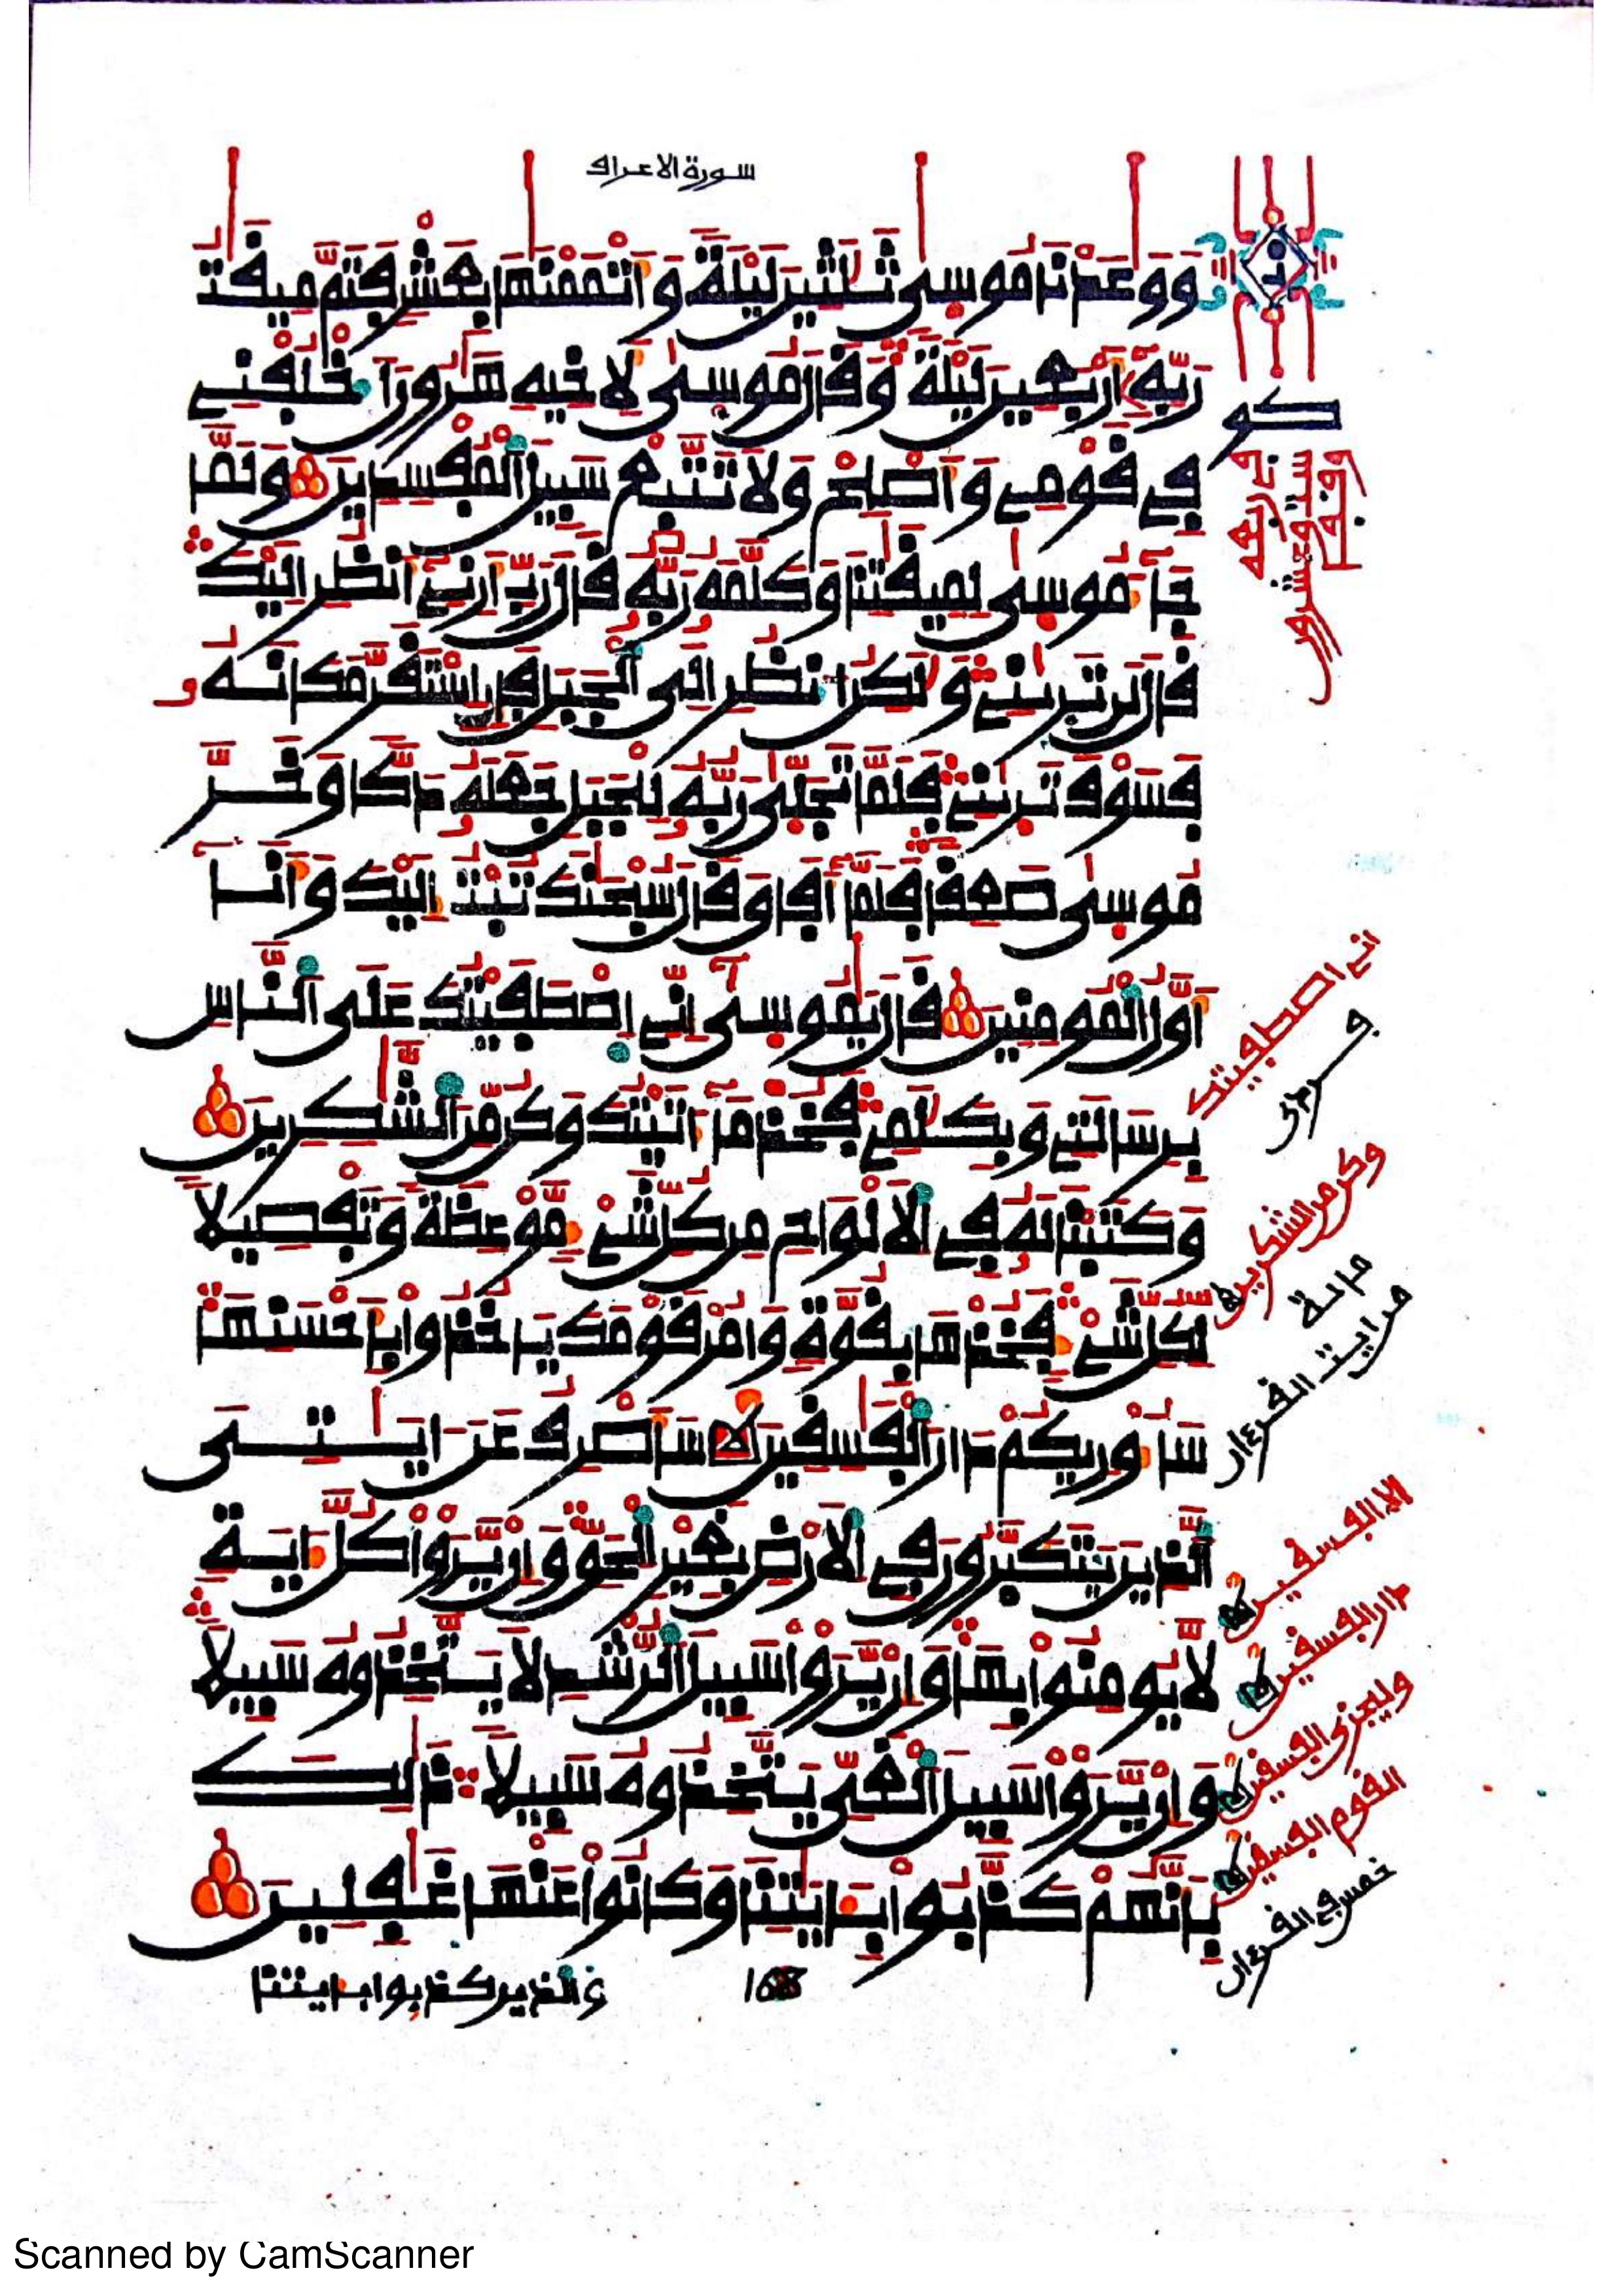 سورة الاعراف
وَوَٰعَدْنَا مُوسِىٰ ثَلَٰثِينَ لَيْلَةً وَأَتْمَمْنَٰهَا بِعَشْرٍ فَتَمَّ مِيقَٰتُ
رَبِّهِۦٓ أَرْبَعِينَ لَيْلَةً وَقَالَ مُوسِىٰ لِأَخِيهِ هَٰرُونَ ٱخْلُفْنِے
فِے قَوْمِے وَأَصْلِحْ وَلَا تَتَّبِعْ سَبِيلَ ٱلْمُفْسِدِينَ وَلَمَّا
جَآءَ مُوسِىٰ لِمِيقَٰتِنَا وَكَلَّمَهُۥ رَبُّهُۥ قَالَ رَبِّ أَرِنِےٓ أَنظُرِ اِلَيْكَ
قَالَ لَن تَرِىٰنِے وَلَٰكِنُ ٱنظُرِ اِلَى ٱلْجَبَلِ فَإِنِ ٱسْتَقَرَّ مَكَانَهُۥ
فَسَوْفَ تَرِىٰنِے فَلَمَّا تَجَلِّىٰ رَبُّهُۥ لِلْجَبَلِ جَعَلَهُۥ دَكّاً وَخَرَّ
مُوسِىٰ صَعِقاً فَلَمَّآ أَفَاقَ قَالَ سُبْحَٰنَكَ تُبْتُ إِلَيْكَ وَأَنَآ
أَوَّلُ ٱلْمُومِنِينَ قَالَ يَٰمُوسِىٰٓ إِنِّے ٱصْطَفَيْتُكَ عَلَى ٱلنَّاسِ
بِرِسَالَتِے وَبِكَلَٰمِے فَخُذْ مَآ ءَاتَيْتُكَ وَكُن مِّنَ ٱلشَّٰكِرِينَ
وَكَتَبْنَا لَهُۥ فِے ٱلْأَلْوَاحِ مِن كُلِّ شَےْءٍ مَّوْعِظَةً وَتَفْصِيلاً
لِّكُلِّ شَےْءٍ فَخُذْهَا بِقُوَّةٍ وَامُرْ قَوْمَكَ يَاخُذُوا بِأَحْسَنِهَا
سَأُوْرِيكُمْ دَارَ ٱلْفَٰسِقِينَ سَأَصْرِفُ عَنَ اٰيَٰتِىَ
ٱلذِينَ يَتَكَبَّرُونَ فِے ٱلْأَرْضِ بِغَيْرِ ٱلْحَقِّ وَإِنْ يَّرَوْا كُلَّ ءَايَةٍ
لَّا يُومِنُوا بِهَا وَإِنْ يَّرَوْا سَبِيلَ ٱلرُّشْدِ لَا يَتَّخِذُوهُ سَبِيلاً
وَإِنْ يَّرَوْا سَبِيلَ ٱلْغَىِّ يَتَّخِذُوهُ سَبِيلاً ذَٰلِكَ
بِأَنَّهُمْ كَذَّبُوا بِـَٔايَٰتِنَا وَكَانُوا عَنْهَا غَٰفِلِينَ
والذين كذبوا بـايتنا
168
انے اصطفيتك
وكن من الشكرين
من اية
القرءان
الا الفسقين
دار الفسقين
وليخزى الفسقين
القوم الفسقين
خمس في القرءان
Scanned by CamScanner